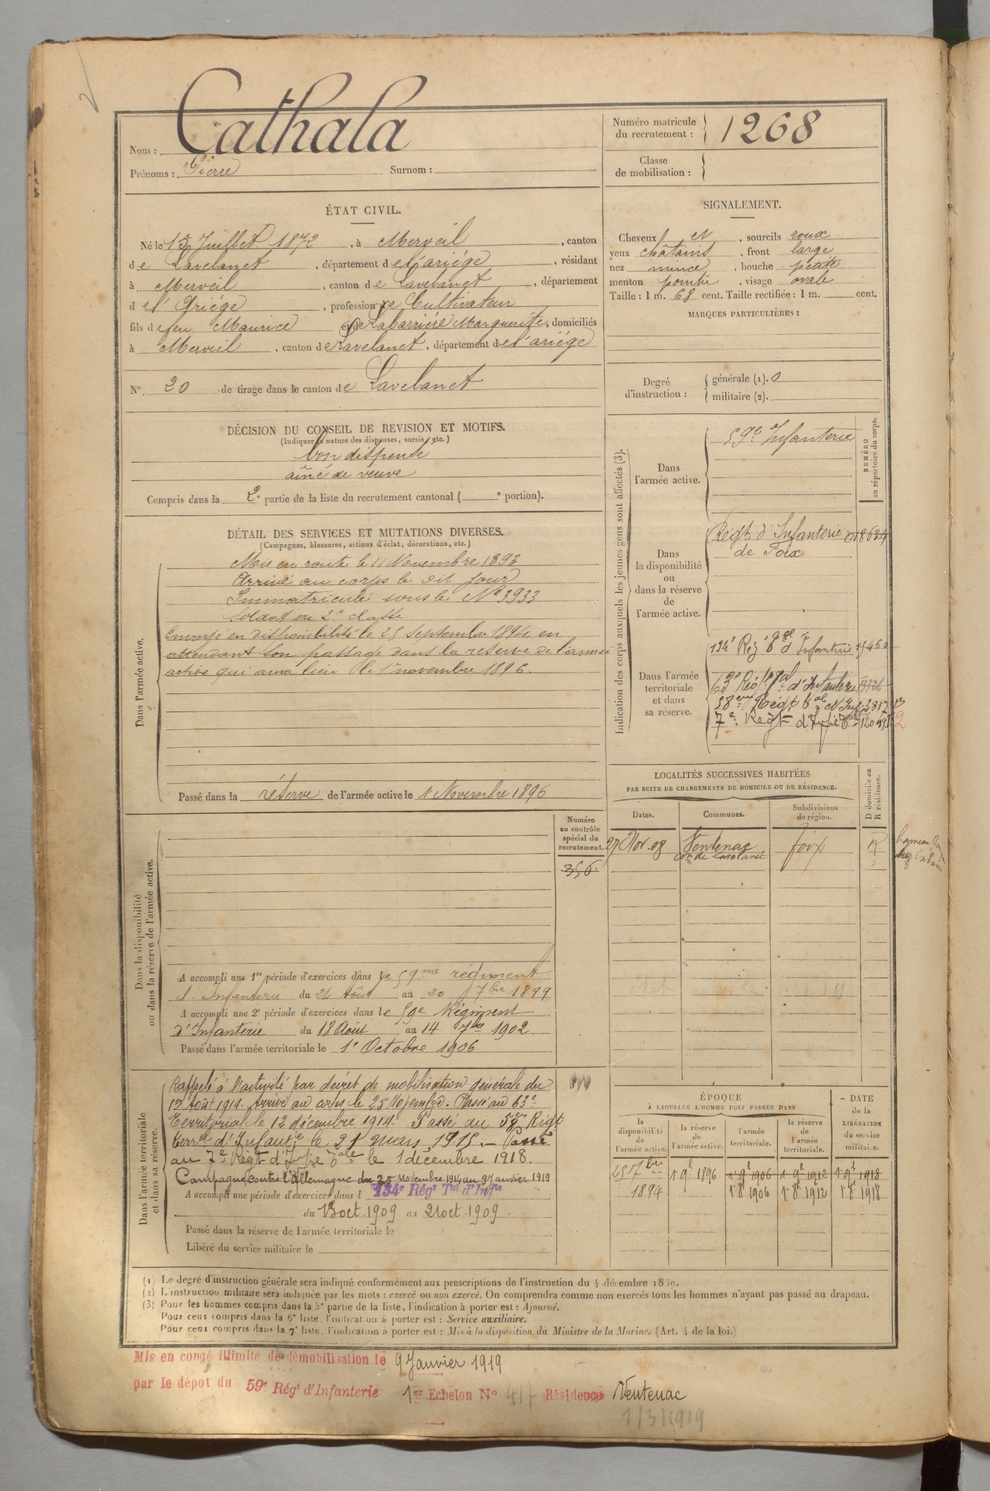 Nom : Cathala
Prénoms : Pierre Surnom :
Numéro matricule du recrutement : 1268
Classe de mobilisation :
ÉTAT CIVIL.
Né le 13 Juillet 1872, à Merveil, canton
de Lavelanet, département de l'ariège, résidant
à Merveil, canton de Lavelanet, département
de l'Ariège, profession de Cultivateur
fils de feu Maurice et de Labarrière Marguerite, domiciliés
à Merveil, canton de Lavelanet, département de l'ariège
N° 20 de tirage dans le canton de Lavelanet
SIGNALEMENT.
Cheveux et, sourcils roux
yeux châtains, front large
nez mince, bouche petite
menton pointu, visage ovale
Taille : 1 m. 68 cent. Taille rectifiée : 1 m. cent.
MARQUES PARTICULIÈRES :
Degré d'instruction : générale (1). 0
militaire (2).
DÉCISION DU CONSEIL DE REVISION ET MOTIFS.
(Indiquer la nature des dispenses, sursis, etc.)
bon dispensé
aîné de veuve
Compris dans la 2e partie de la liste du recrutement cantonal ( e portion).
DÉTAIL DES SERVICES ET MUTATIONS DIVERSES.
(Campagnes, blessures, actions d'éclat, décorations, etc.)
Dans l'armée active.
Mis en route le 11 Novembre 1893
Arrivé au corps le dit jour
Immatriculé sous le N° 3933
soldat de 2e classe
Envoyé en disponibilité le 25 Septembre 1894 en
attendant son passage dans la réserve de l'armée
active qui aura lieu le 1er novembre 1896.
Passé dans la réserve de l'armée active le 1 Novembre 1896
Indication des corps auxquels les jeunes gens sont affectés (3).
NUMÉRO au répertoire du corps.
Dans l'armée active.
59e Infanterie
Dans la disponibilité ou dans la réserve de l'armée active.
Régt d'Infanterie
de Foix
Dans l'armée territoriale et dans sa réserve.
134e Régt d'Infanterie
63e Régt d'Infanterie
58eme Régt
7e Régt
LOCALITÉS SUCCESSIVES HABITÉES
PAR SUITE DE CHANGEMENTS DE DOMICILE OU DE RÉSIDENCE.
Dates. Communes. Subdivisions de région. D domicile ou R résidence.
27 Nov. 08 Ventenac foix R
con de Lavelanet
Dans la disponibilité ou dans la réserve de l'armée active.
Numéro au contrôle spécial du recrutement.
356
A accompli une 1re période d'exercices dans le 59me régiment
d'Infanterie du 24 Août au 20 7bre 1899
A accompli une 2e période d'exercices dans le 59e Régiment
d'Infanterie du 18 Août au 14 7bre 1902
Passé dans l'armée territoriale le 1er Octobre 1906
Dans l'armée territoriale et dans sa réserve.
Rappelé à l'activité par décret de mobilisation générale du
1er Août 1914. Arrivé au corps le 25 Novembre. Passé au 63e
Territorial le 12 décembre 1914. Passé au 58e Régt
terral d'Infantie le 21 mars 1915. Passé
au 7e Régt d'Infie Tale le 1 décembre 1918.
Campagne contre l'Allemagne du 25 Novembre 1914 au 9 janvier 1919
A accompli une période d'exercices dans l 134e Régt Tal d'Infie
du 13 oct. 1909 au 21 oct. 1909.
Passé dans la réserve de l'armée territoriale le
Libéré du service militaire le
ÉPOQUE
À LAQUELLE L'HOMME DOIT PASSER DANS
la disponibilité de l'armée active. la réserve de l'armée active. l'armée territoriale. la réserve de l'armée territoriale. DATE de la LIBÉRATION du service militaire.
25 7bre 1894 1 9e 1896 1 9e 1906 1 9e 1912 1 9e 1918
1 8e 1906 1 8e 1912 1 8e 1918
(1) Le degré d'instruction générale sera indiqué conformément aux prescriptions de l'instruction du 4 décembre 1889.
(2) L'instruction militaire sera indiquée par les mots : exercé ou non exercé. On comprendra comme non exercés tous les hommes n'ayant pas passé au drapeau.
(3) Pour les hommes compris dans la 5e partie de la liste, l'indication à porter est : Ajourné.
Pour ceux compris dans la 6e liste, l'indication à porter est : Service auxiliaire.
Pour ceux compris dans la 7e liste, l'indication à porter est : Mis à la disposition du Ministre de la Marine. (Art. 4 de la loi.)
Mis en congé illimité de démobilisation le 9 Janvier 1919
par le dépot du 59e Régt d'Infanterie 1er Echelon N° 417 Résidence Ventenac
1/3/1919